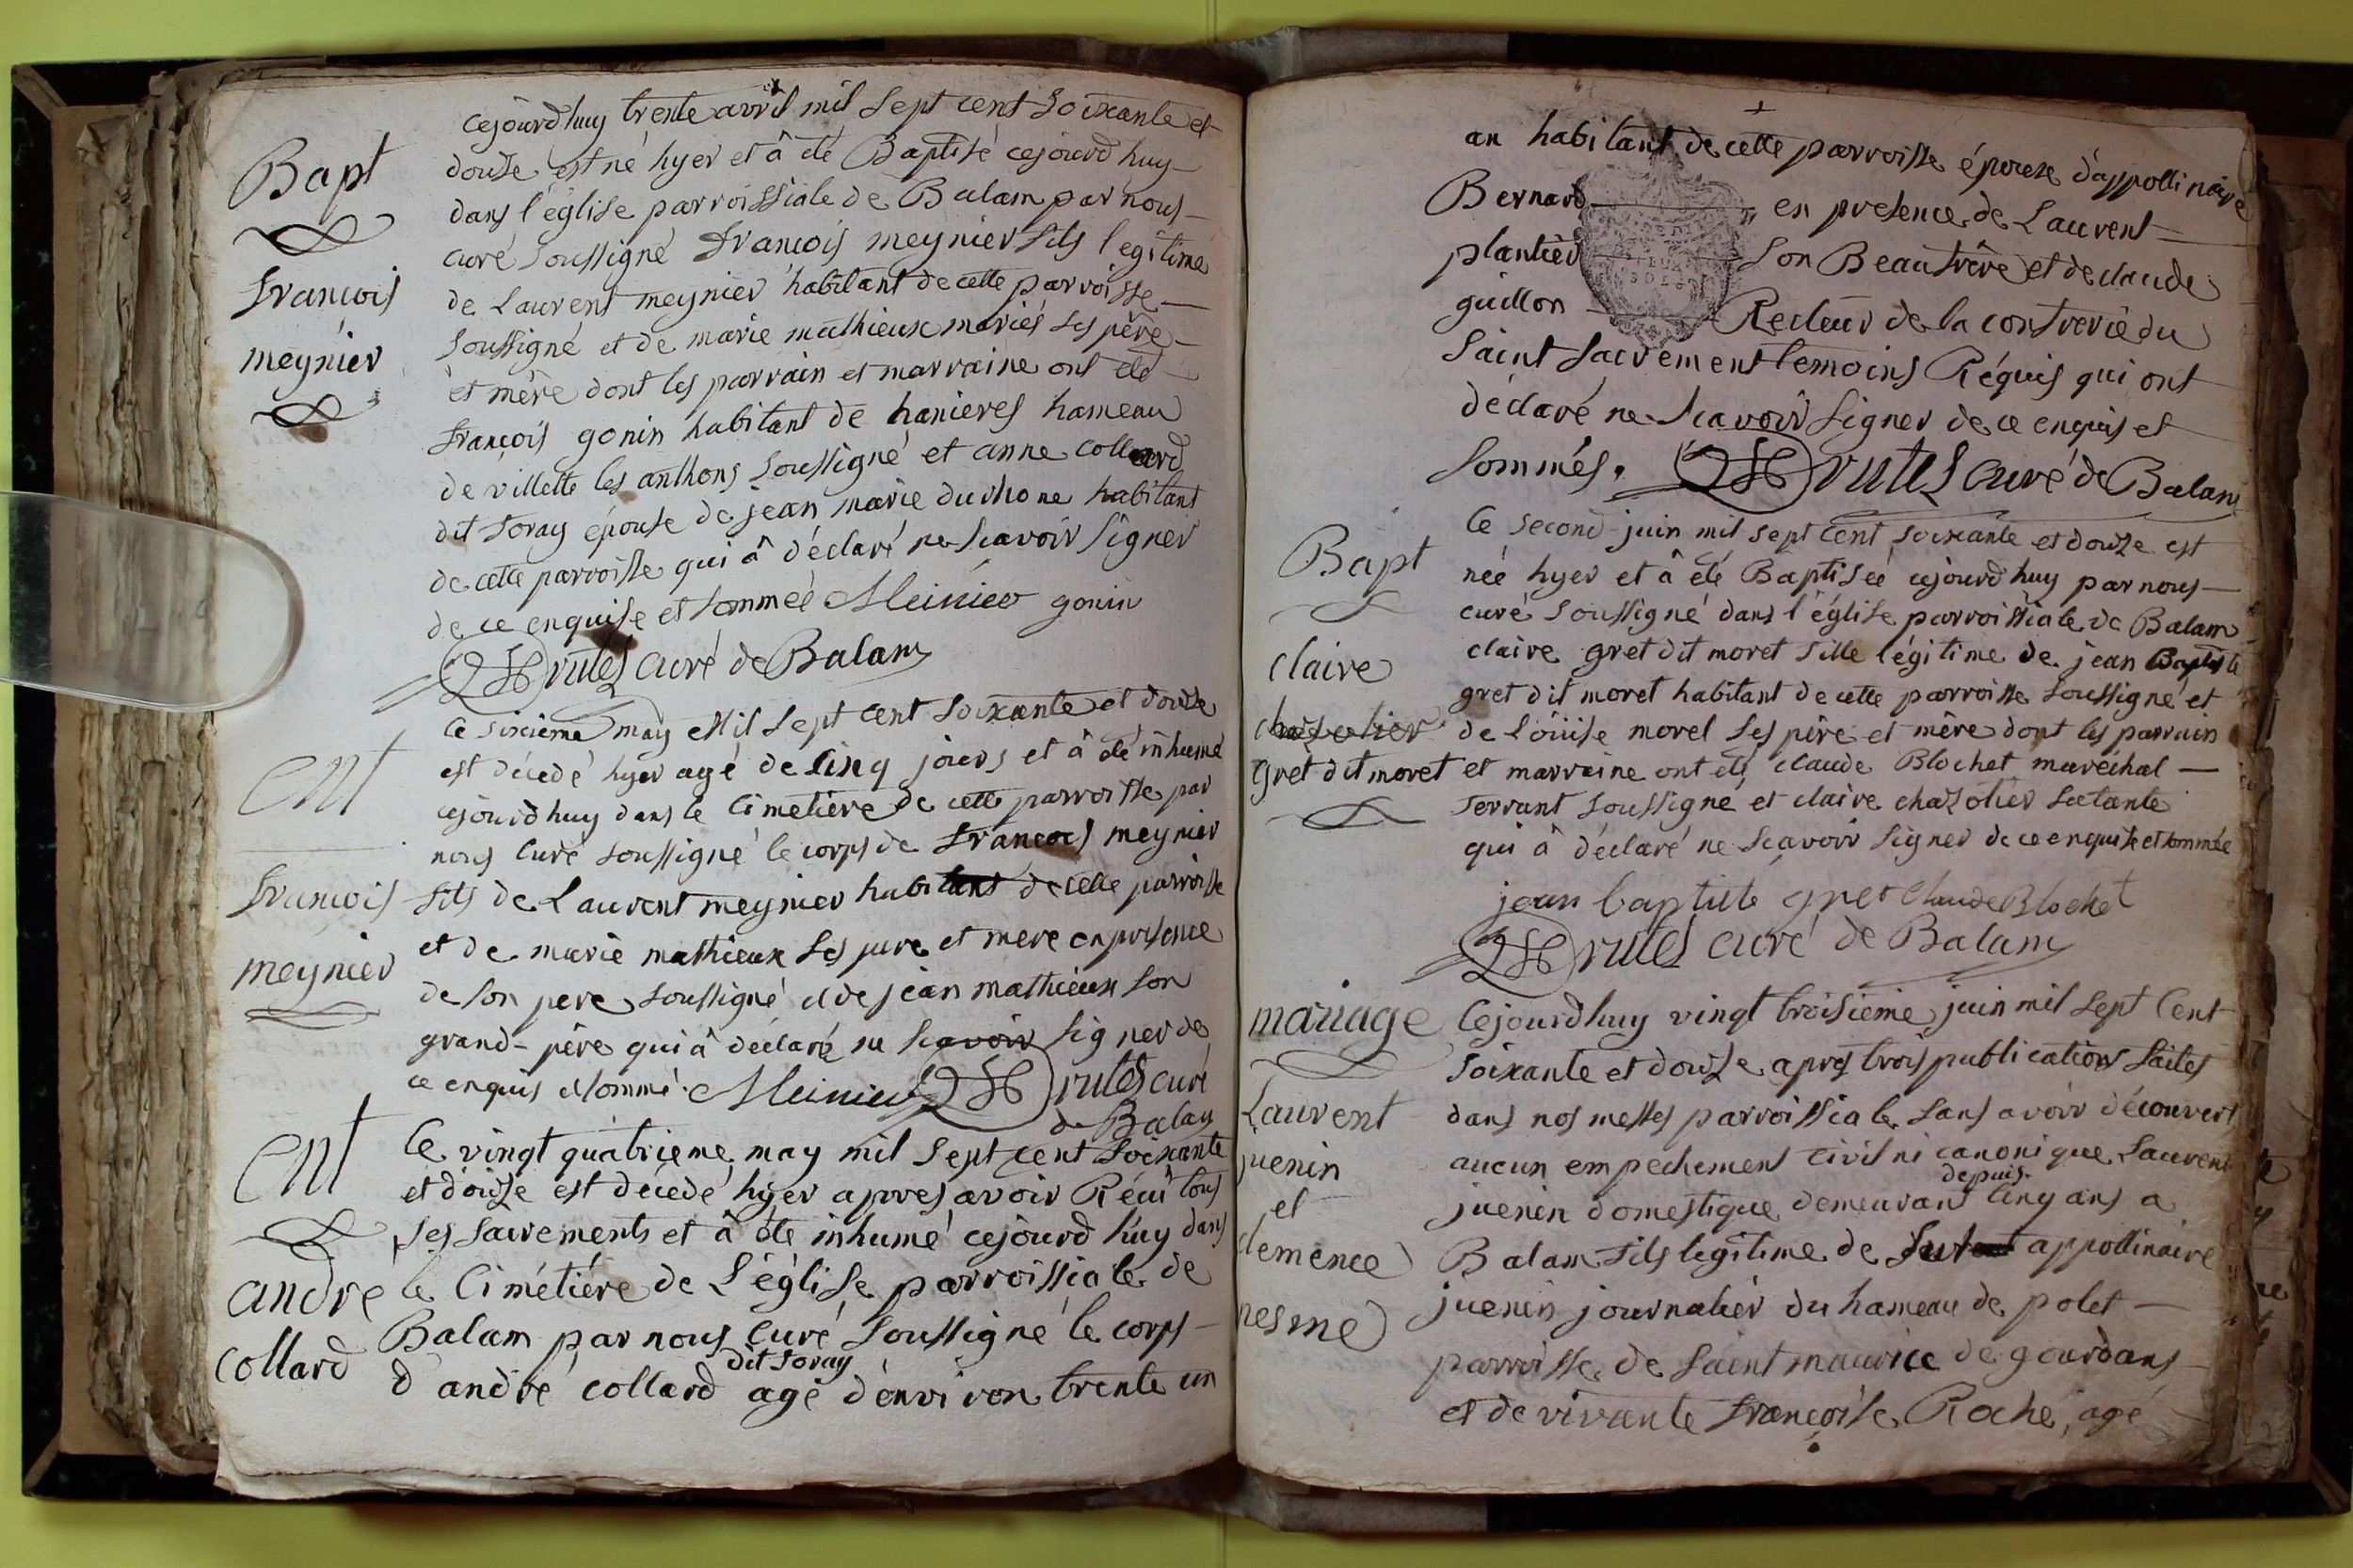 Bapt
françois
meynier
cejourdhuy trente avril mil sept cent soixante et
douze est né hyer et â été Baptisé cejourd huy
dans l'église parroissiale de Balam par nous
curé soussigné françois meynier fils legitime
de Laurent meynier habitant de cette parroisse
soussigné et de marie mathieux mariés ses père
et mère dont les parrain et marraine ont eté
françois gonin habitant de hanieres hameau
de villette les anthons soussigné et anne collard
dit foray épouse de jean marie durhone habitant
de cette parroisse qui â déclaré ne scavoir signer
de ce enquise et sommeé Meinier gonin
Brutes curé de Balam
ent
françois
meynier
Ce sixième may Mil sept cent soixante et douze
est décedé hyer agé de Cinq jours et â été inhumé
cejourdhuy dans le Cimetière de cette parroisse par
nous Curé soussigné le corps de françois meynier
fils de Laurent meynier habitant de cette parroisse
et de marie mathieux ses pere et mere en presence
de son pere soussigné et de jean mathieux son
grand-père qui â déclaré ne scavoir signer de
ce enquis et sommé. Meinier Brutes curé
de Balam
ent
andré
collard
Ce vingt quatrieme may mil sept cent soixante
et douze est décedé hyer apres avoir Réçu tous
ses sacrements et â été inhumé cejourd huy dans
le Cimétiére de L'église parroissiale de
Balam par nous Curé soussigné le corps
dit foray
d'andré collard agé d'environ trente un
an habitant de cette parroisse épouse d'appollinaire
Bernard en presence de Laurent
plantier son Beaufrère et de claude
guillon Recteur de la confrerie du
saint sacrement temoins Réquis qui ont
déclaré ne scavoir signer de ce enquis et
sommés. Brutes curé de Balam
Bapt
claire
chazotier
gret dit moret
Ce second juin mil sept Cent soixante et douze est
neé hyer et â été Baptiseé cejourd huy par nous
curé soussigné dans l'église parroissiale de Balam
claire gret dit moret fille légitime de jean Baptiste
gret dit moret habitant de cette parroisse soussigné et
de Loüise morel ses père et mère dont les parrain
et marraine ont été claude Blochet maréchal
ferrant soussigné et claire chazotier sa tante
qui â déclaré ne scavoir signer de ce enquise et sommée
jean baptiste gret Claude Blochet
Brutes curé de Balam
mariage
Laurent
juenin
et
clemence
nesme
Cejourdhuy vingt troisième juin mil sept Cent
soixante et douze apres trois publications faites
dans nos messes parroissiale sans avoir découvert
aucun empechement Civil ni canonique Laurent
depuis
juenin domestique demeurant Cinq ans a
Balam fils legitime de appollinaire
juenin journalier du hameau de polet
parroisse de saint maurice de gourdans
et de vivante françoise Roche, agé